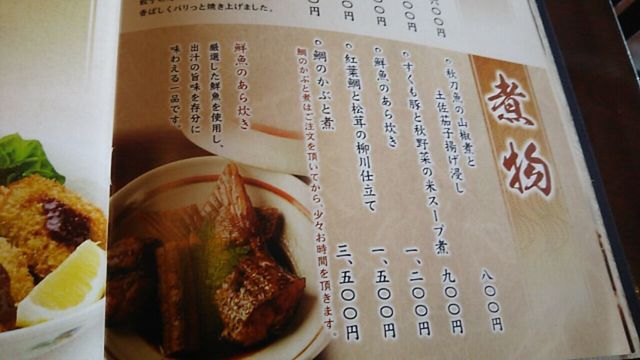 煮物
秋刀魚の山椒煮と
土佐茄子揚げ浸し
八〇〇円
すくも豚と秋野菜の米スープ煮
九〇〇円
鮮魚のあら炊き
一、二〇〇円
紅葉鯛と松茸の柳川仕立て
一、五〇〇円
鯛のかぶと煮
三、五〇〇円
鯛のかぶと煮はご注文を頂いてから、少々お時間を頂きます。
鮮魚のあら炊き
厳選した鮮魚を使用し、
出汁の旨味を存分に
味わえる一品です。
〇〇円
〇円
円
香ばしくパリっと焼き上げました。